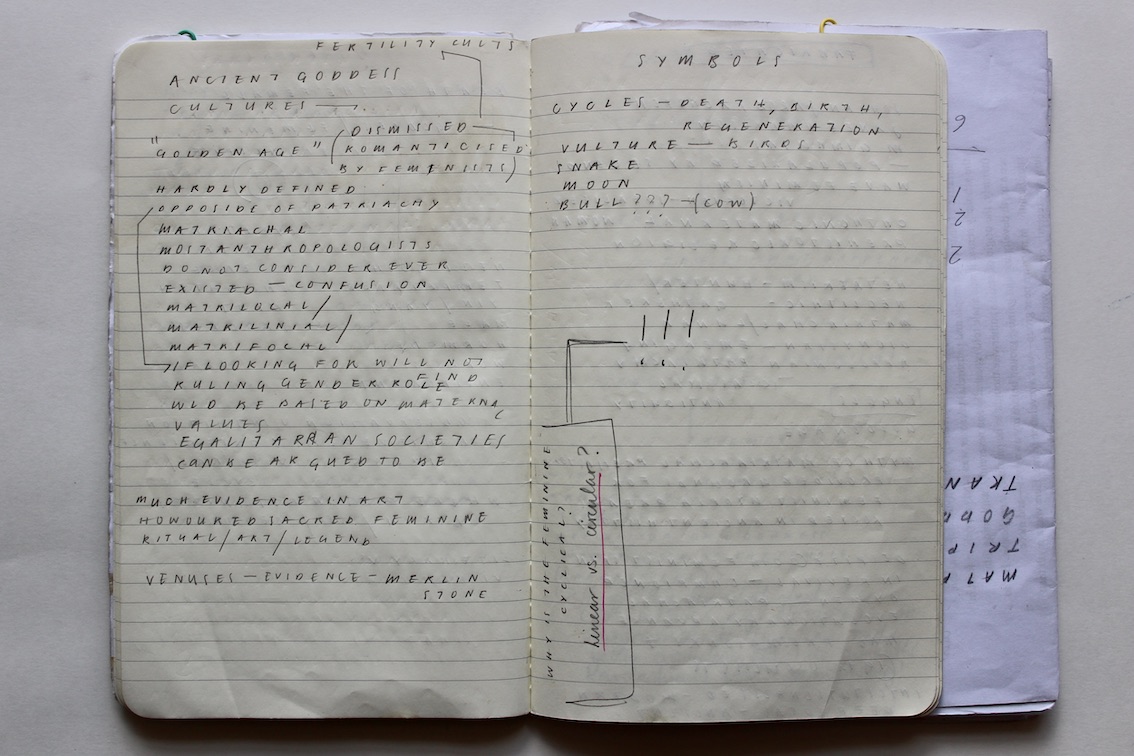 FERTILITY CULTS
ANCIENT GODDESS
CULTURES — ...
"GOLDEN AGE" (DISMISSED —
ROMANTICISED
BY FEMINISTS)
HARDLY DEFINED
OPPOSIDE OF PATRIACHY
MATRIACHAL
MOST ANTHROPOLOGISTS
DO NOT CONSIDER EVER
EXISTED — CONFUSION
MATRILOCAL/
MATRILINIAL/
MATRIFOCAL
IF LOOKING FOR WILL NOT
FIND
RULING GENDER ROLE
WLD BE BASED ON MATERNAL
VALUES
EGALITARIAN SOCIETIES
CAN BE ARGUED TO BE
MUCH EVIDENCE IN ART
HONOURED SACRED FEMININE
RITUAL/ART/LEGEND
VENUSES — EVIDENCE — MERLIN
STONE
SYMBOLS
CYCLES — DEATH, BIRTH,
REGENERATION
VULTURE — BIRDS
SNAKE
MOON
BULL ??? — (COW)
! ! !
WHY IS THE FEMININE
CYCLICAL?
Linear vs. circular?
6
1
2
2
TRAN
GODD
TRIP
MATR